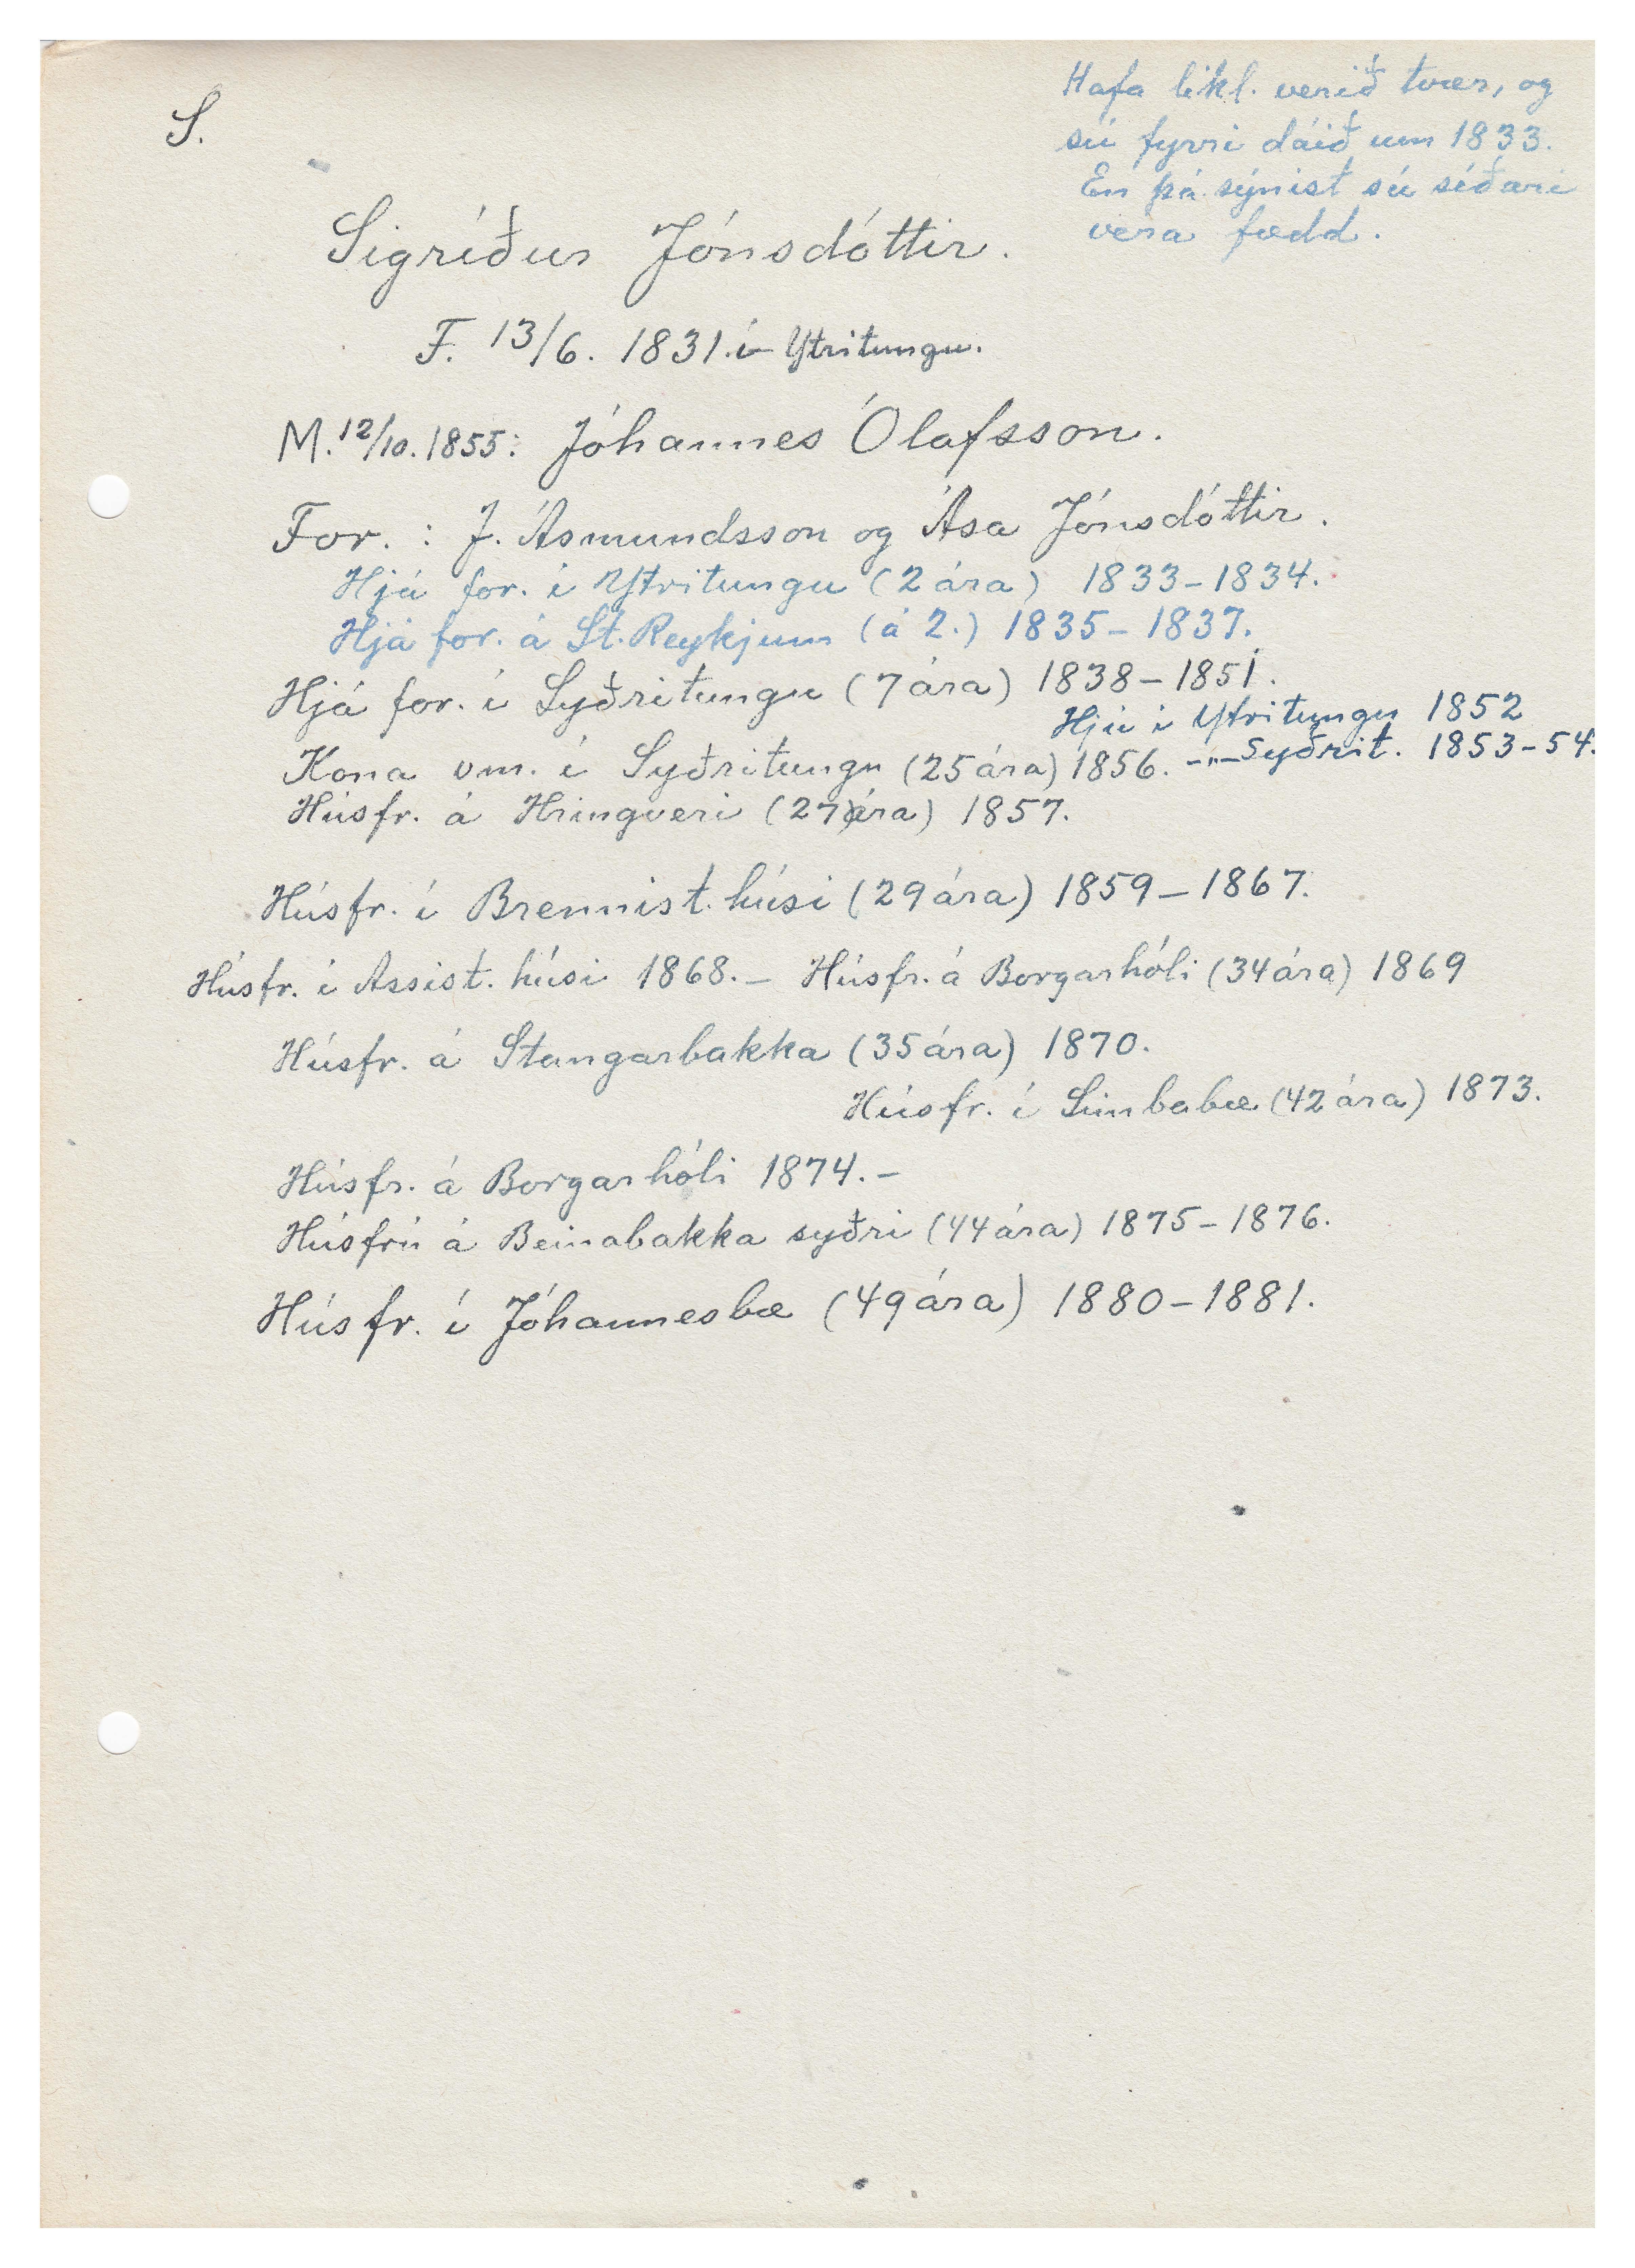 S.
Hafa líkl. verið tvær, og
sú fyrri dáið um 1833.
En þá sýnist sú síðari
vera fædd.
Sigríður Jónsdóttir.
F. 13/6. 1831. í Ytritungu.
M. 12/10. 1855: Jóhannes Ólafsson.
For. : J. Ásmundsson og Ása Jónsdóttir.
Hjá for. í Ytritungu (2 ára) 1833-1834.
Hjá for. á St. Reykjum (á 2.) 1835-1837.
Hjá for. í Syðritungu (7 ára) 1838-1851.
Hjú í Ytritungu 1852
Kona vm. í Syðritungu (25 ára) 1856. -"- Syðrit. 1853-54.
Húsfr. á Hringveri (27 ára) 1857.
Húsfr. í Brennist. húsi (29 ára) 1859-1867.
Húsfr. í Assist. húsi 1868. - Húsfr. á Borgarhóli (34 ára) 1869
Húsfr. á Stangarbakka (35 ára) 1870.
Húsfr. í Simbabæ (42 ára) 1873.
Húsfr. á Borgarhóli 1874. -
Húsfrú á Beinabakka syðri (44 ára) 1875-1876.
Húsfr. í Jóhannesbæ (49 ára) 1880-1881.